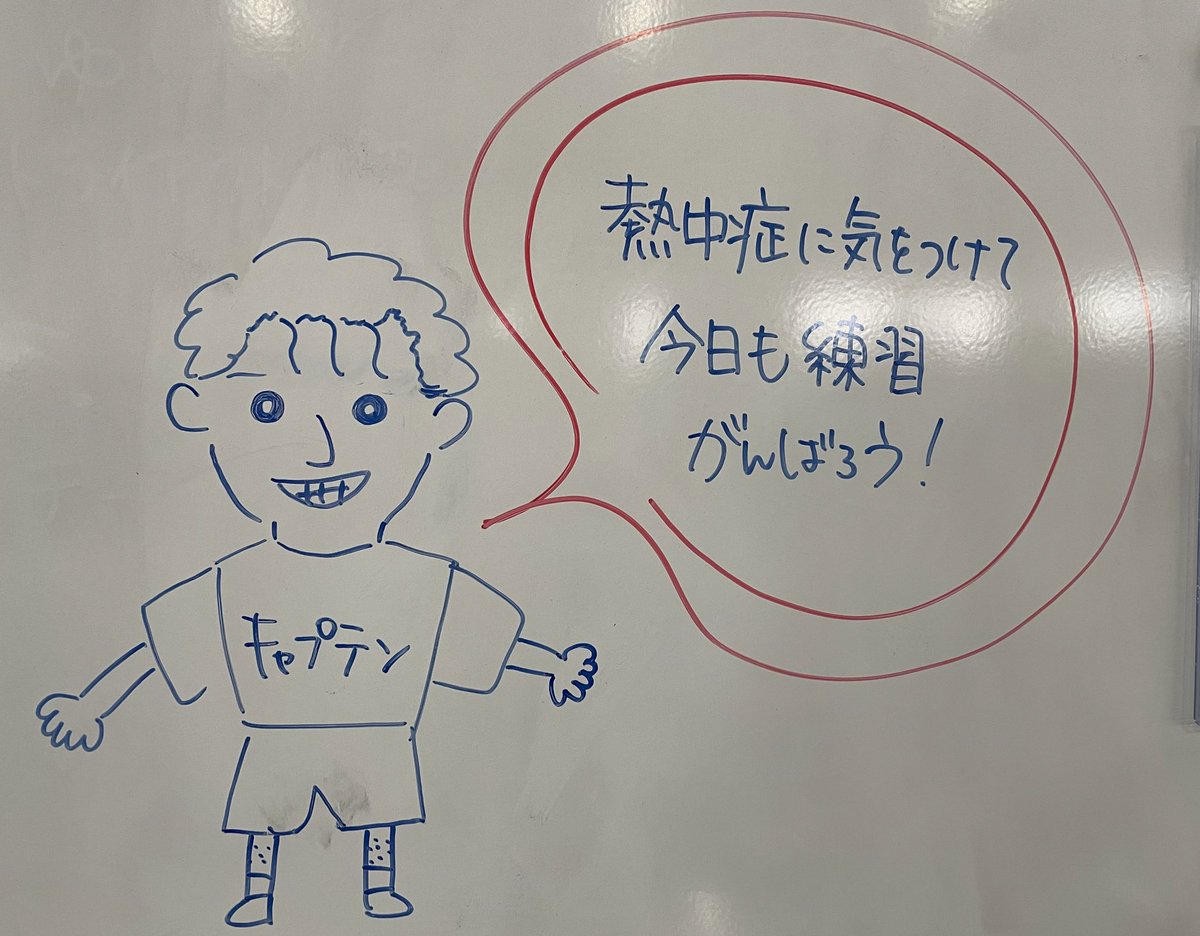 熱中症に気をつけて
今日も練習
がんばろう!
キャプテン